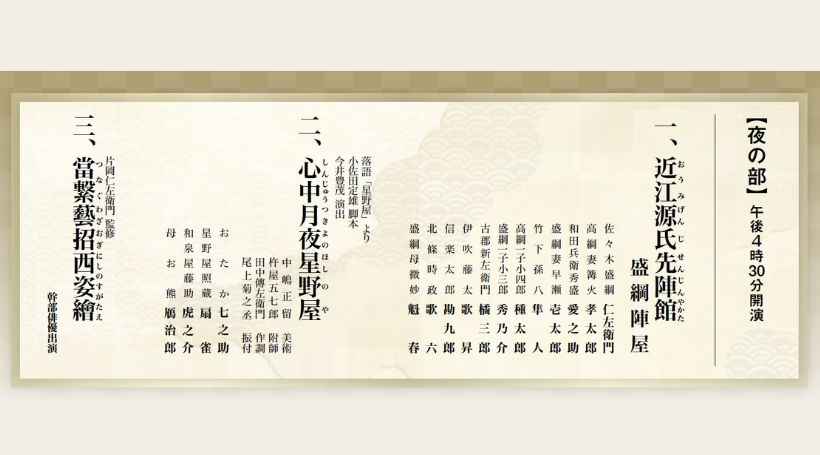 【夜の部】 午後4時30分開演
一、近江源氏先陣館
おうみげんじせんじんやかた
盛綱陣屋
佐々木盛綱 仁左衛門
高綱妻篝火 孝太郎
和田兵衛秀盛 愛之助
盛綱妻早瀬 壱太郎
竹下孫八 隼人
高綱一子小四郎 種太郎
盛綱一子小三郎 秀乃介
古郡新左衛門 橘三郎
伊吹藤太 歌昇
信楽太郎 勘九郎
北條時政 歌六
盛綱母微妙 魁春
落語「星野屋」より
小佐田定雄 脚本
今井豊茂 演出
二、心中月夜星野屋
しんじゅうつきよのほしのや
中嶋正留 美術
杵屋五七郎 附師
田中傳左衛門 作調
尾上菊之丞 振付
おたか 七之助
星野屋照蔵 扇雀
和泉屋藤助 虎之介
母お熊 鴈治郎
片岡仁左衛門 監修
三、當繋藝招西姿繪
つなぐわざおぎにしのすがたえ
幹部俳優出演